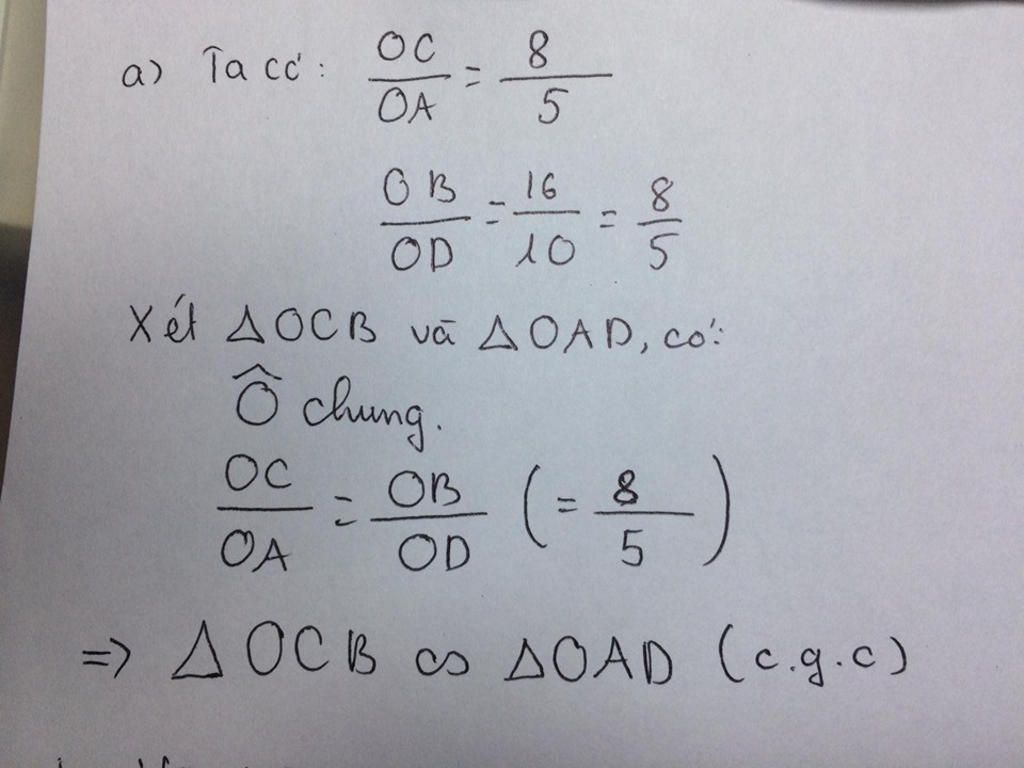 a) Ta có: OC/OA = 8/5
OB/OD = 16/10 = 8/5
Xét △OCB và △OAD, có:
Ô chung.
OC/OA = OB/OD (= 8/5)
=> △OCB ∽ △OAD (c.g.c)